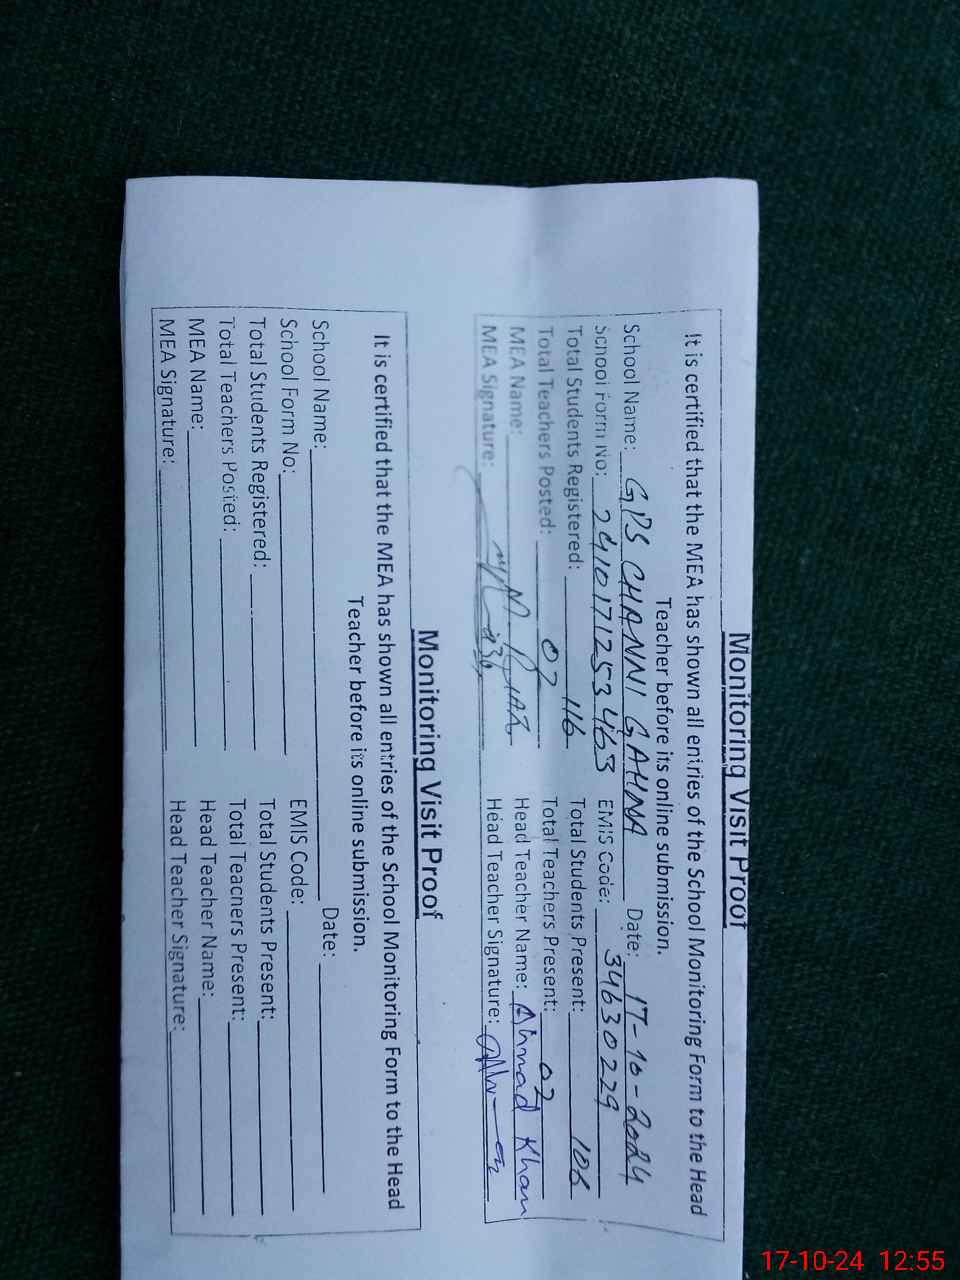 Monitoring Visit Proof
It is certified that the MEA has shown all entries of the School Monitoring Form to the Head
Teacher before its online submission.
School Name: GPS CHANNI GAHNA Date: 17-10-2024
School Form No: 2410171253463 EMIS Code: 34630229
Total Students Registered: 116 Total Students Present: 108
Total Teachers Posted: 02 Total Teachers Present: 02
MEA Name: M. Head Teacher Name: Ahmad Khan
MEA Signature: Head Teacher Signature:
Monitoring Visit Proof
It is certified that the MEA has shown all entries of the School Monitoring Form to the Head
Teacher before its online submission.
School Name: Date:
School Form No: EMIS Code:
Total Students Registered: Total Students Present:
Total Teachers Posted: Total Teachers Present:
MEA Name: Head Teacher Name:
MEA Signature: Head Teacher Signature:
17-10-24 12:55